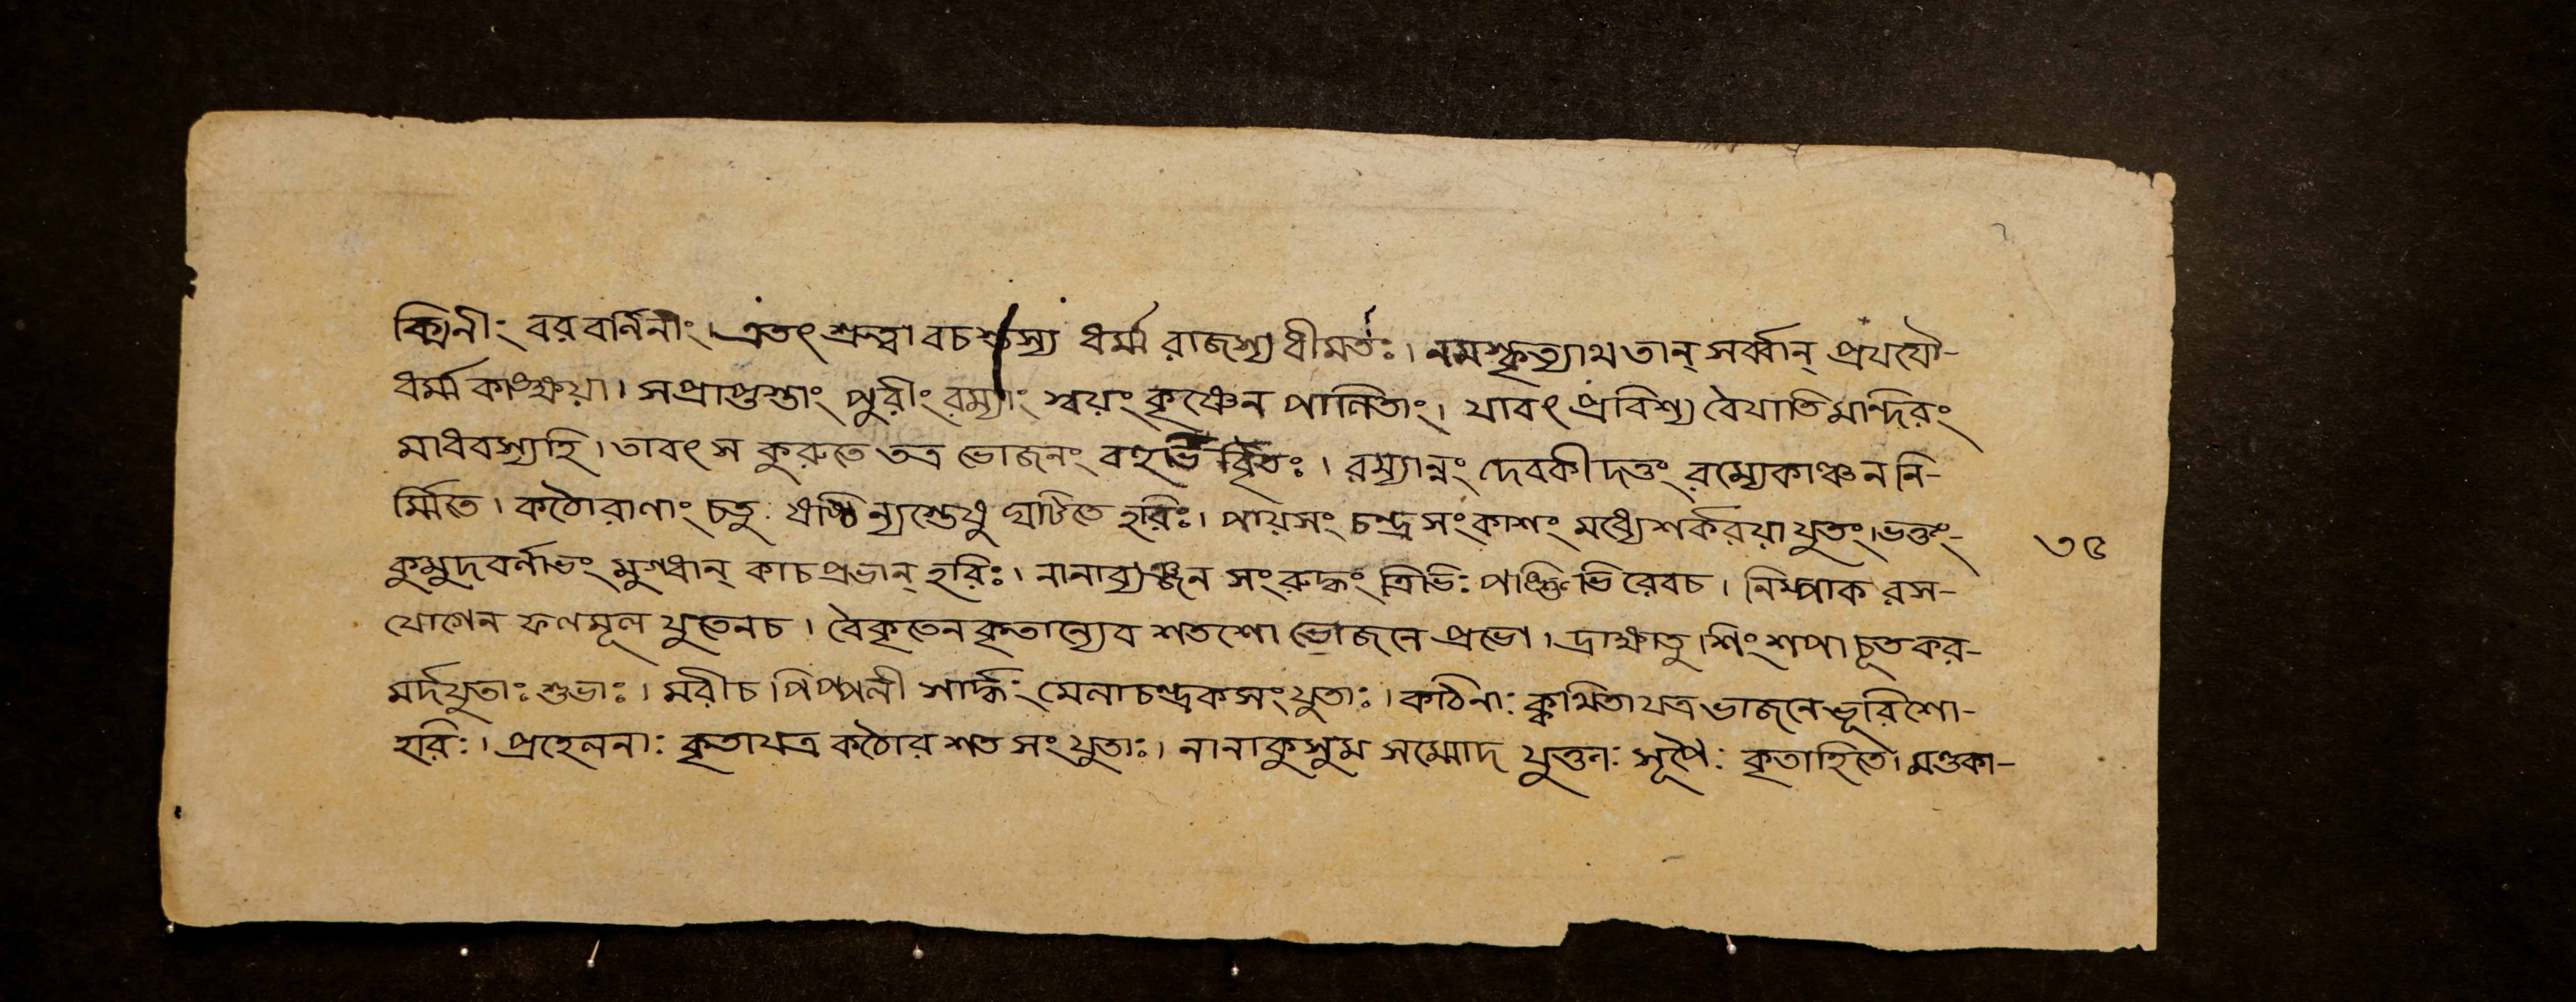 ক্মিনীং বরবর্নিনীং। এতৎ শ্রুত্বা বচস্তস্য ধর্ম্মরাজস্যধীমতঃ। নমস্কৃত্যাথ তান্ সর্ব্বান্ প্রযযৌ-
ধর্ম্মকাঙ্ক্ষয়া। সপ্রাপ্তস্তাং পুরীং রম্যাং স্বয়ং কৃষ্ণেন পালিতাং। যাবৎ প্রবিশ্য বৈযাতি মন্দিরং
মাধবস্যহি। তাবৎ স কুরুতে তত্র ভোজনং বহুভির্বৃতঃ। রম্যান্নং দেবকীদত্তং রম্যেকাঞ্চননি-
র্ম্মিতে। কঠৌরাণাং চতুঃষষ্ঠি ঘটিতে হরিঃ। পায়সং চন্দ্রসংকাশং মধ্যেশর্করয়াযুতং। ভক্তং-
কুমুদবর্নাভং মুগ্ধান্ কাচপ্রভান্ হরিঃ। নানাব্যঞ্জন সংরুদ্ধং ত্রিভিঃ পঙ্ক্তিভিরেবচ। নিম্পাক রস-
যোগেন ফলমূল যুতেনচ। বৈকৃতেনকৃতান্যেব শতশো ভোজনে প্রভো। দ্রাক্ষাতু শিংশপা চূতকর-
মর্দযুতাঃ শুভাঃ। মরীচ পিপ্পলী সার্দ্ধং মেলাচন্দ্রকসংযুতাঃ। কঠিনাঃ ক্বাথিতাযত্র ভাজনে ভূরিশো-
হরিঃ। প্রহেলনাঃ কৃতাযত্র কঠৌর শত সংযুতাঃ। নানাকুসুম সম্মোদ সূপৈঃ কৃতাহিতে। মণ্ডকা-
৩৫